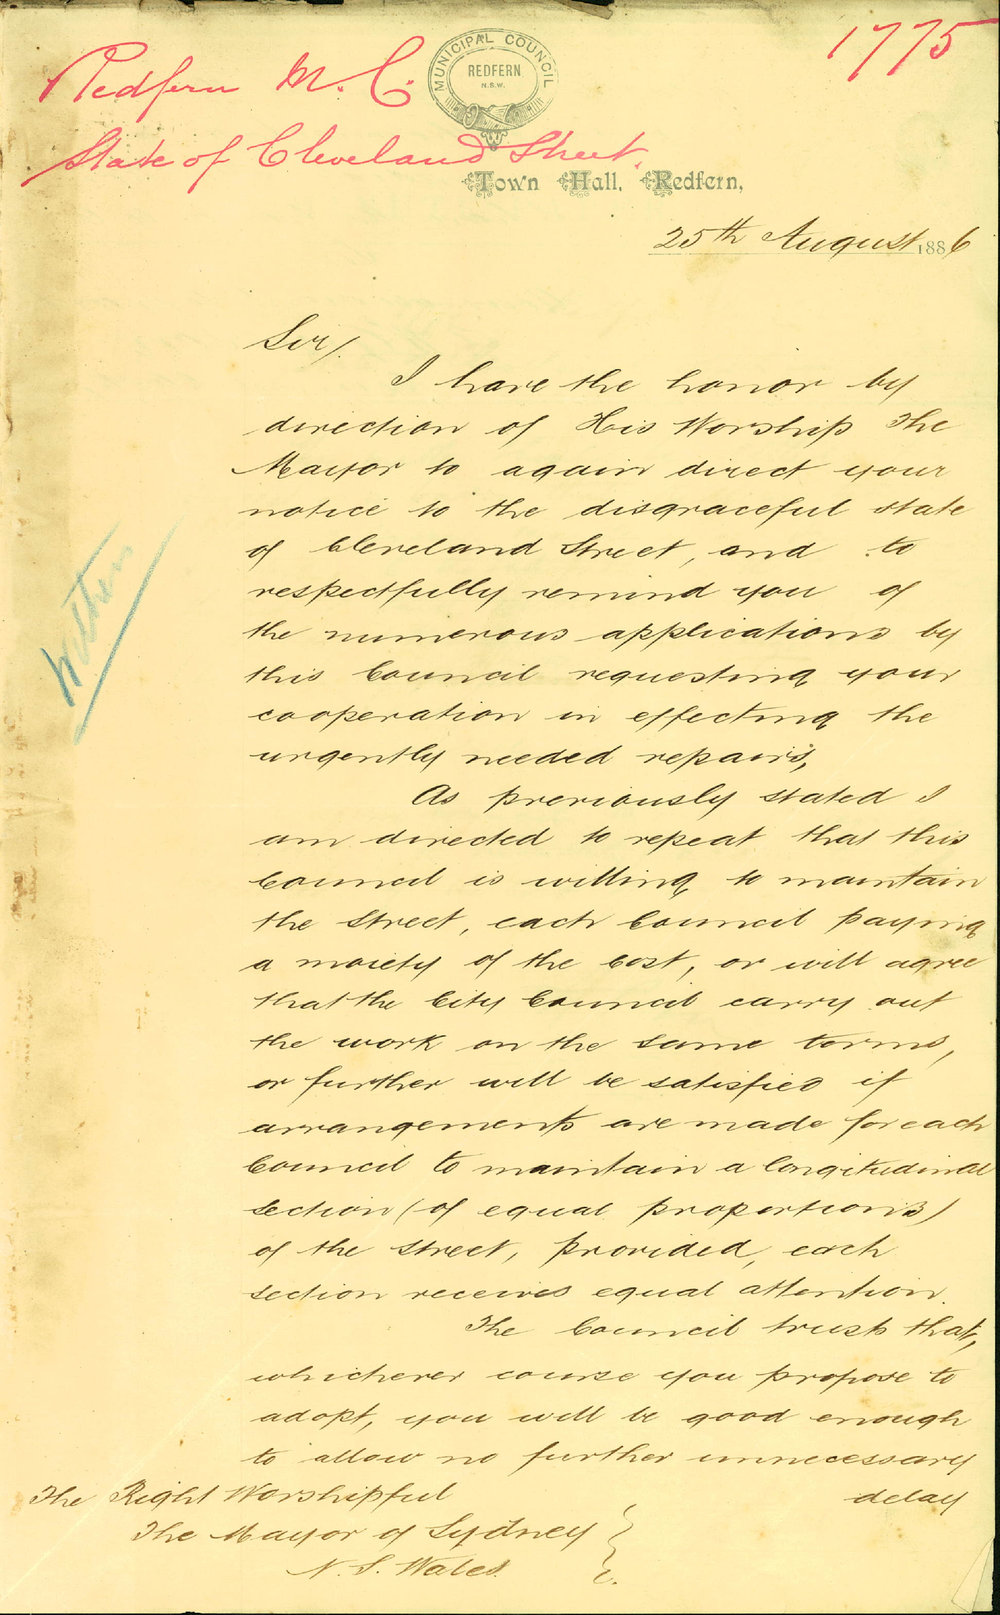 1775
Redfern M. C.
State of Cleveland Street.
MUNICIPAL COUNCIL
REDFERN
N.S.W.
Town Hall, Redfern,
25th August 1886
Sir/.
I have the honor by
direction of His Worship The
Mayor to again direct your
notice to the disgraceful state
of Cleveland Street, and to
respectfully remind you of
the numerous applications by
this Council requesting your
cooperation in effecting the
urgently needed repairs,
As previously stated I
am directed to repeat that this
Council is willing to maintain
the street, each Council paying
a moiety of the Cost, or will agree
that the City Council carry out
the work on the same terms,
or further will be satisfied if
arrangements are made for each
Council to maintain a longitudinal
section (of equal proportions)
of the street, provided, each
section receives equal attention.
The Council trusts that,
whichever course you propose to
adopt, you will be good enough
to allow no further unnecessary
delay
The Right Worshipful
The Mayor of Sydney
N. S. Wales.